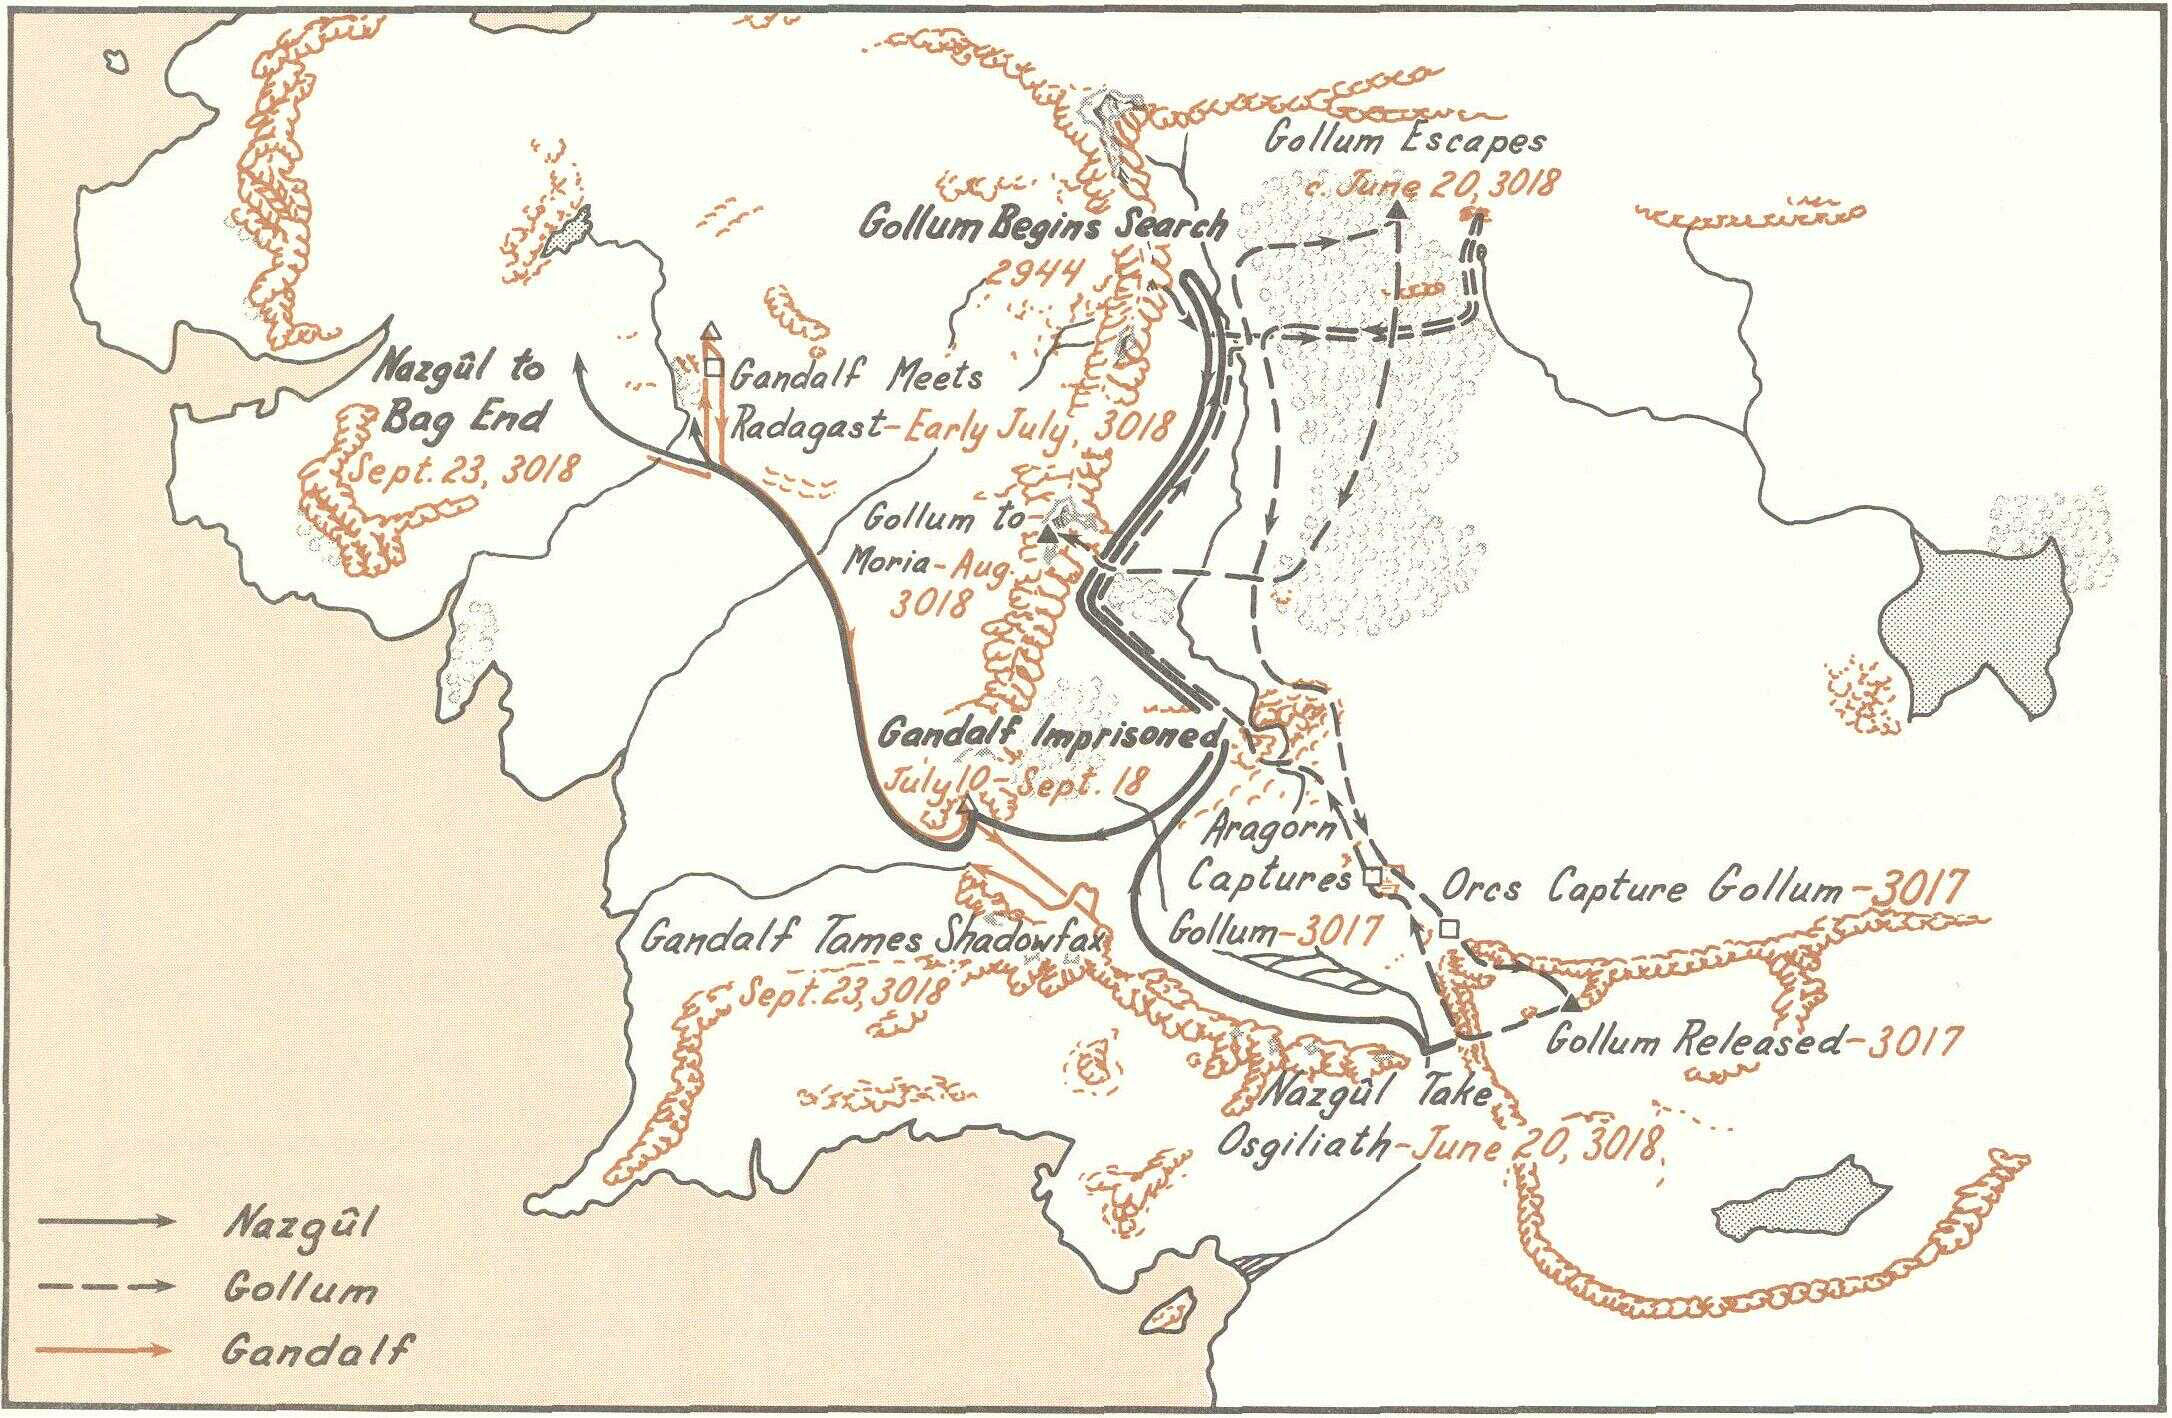 Gollum Escapes
c. June 20, 3018
Gollum Begins Search
2944
Nazgûl to
Bag End
Sept. 23, 3018
Gandalf Meets
Radagast-Early July, 3018
Gollum to
Moria-Aug.
3018
Gandalf Imprisoned
July 10-Sept. 18
Aragorn
Captures
Gollum-3017
Orcs Capture Gollum-3017
Gandalf Tames Shadowfax
Sept. 23, 3018
Gollum Released-3017
Nazgûl Take
Osgiliath-June 20, 3018
Nazgûl
Gollum
Gandalf